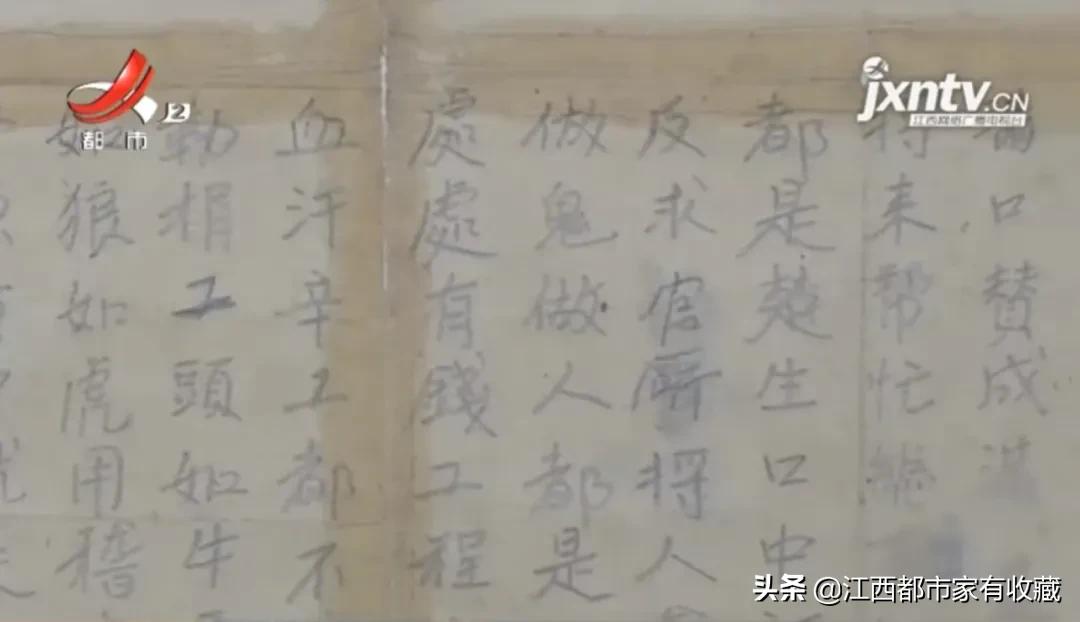 都市
2
jxntv.CN
江西网络广播电视台
口贊成
来帮忙
都是楚生口中
反求官所将人
做鬼做人都是
處處有錢工程
血汗辛工都不
勒捐工頭如牛
如狼如虎用稽
头条 @江西都市家有收藏